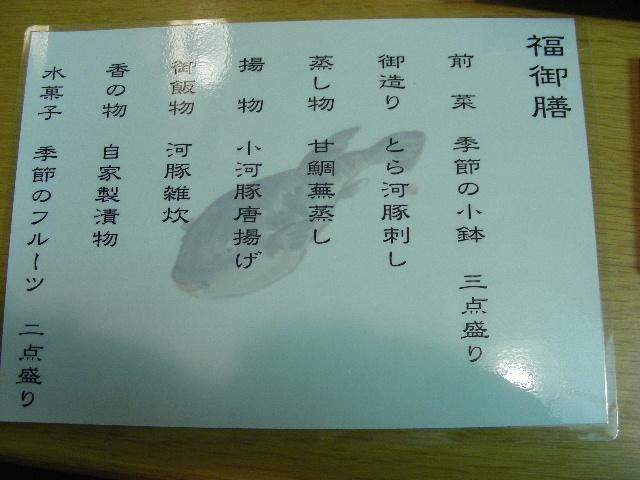 福御膳
前菜 季節の小鉢 三点盛り
御造り とら河豚刺し
蒸し物 甘鯛蕪蒸し
揚物 小河豚唐揚げ
御飯物 河豚雑炊
香の物 自家製漬物
水菓子 季節のフルーツ 二点盛り